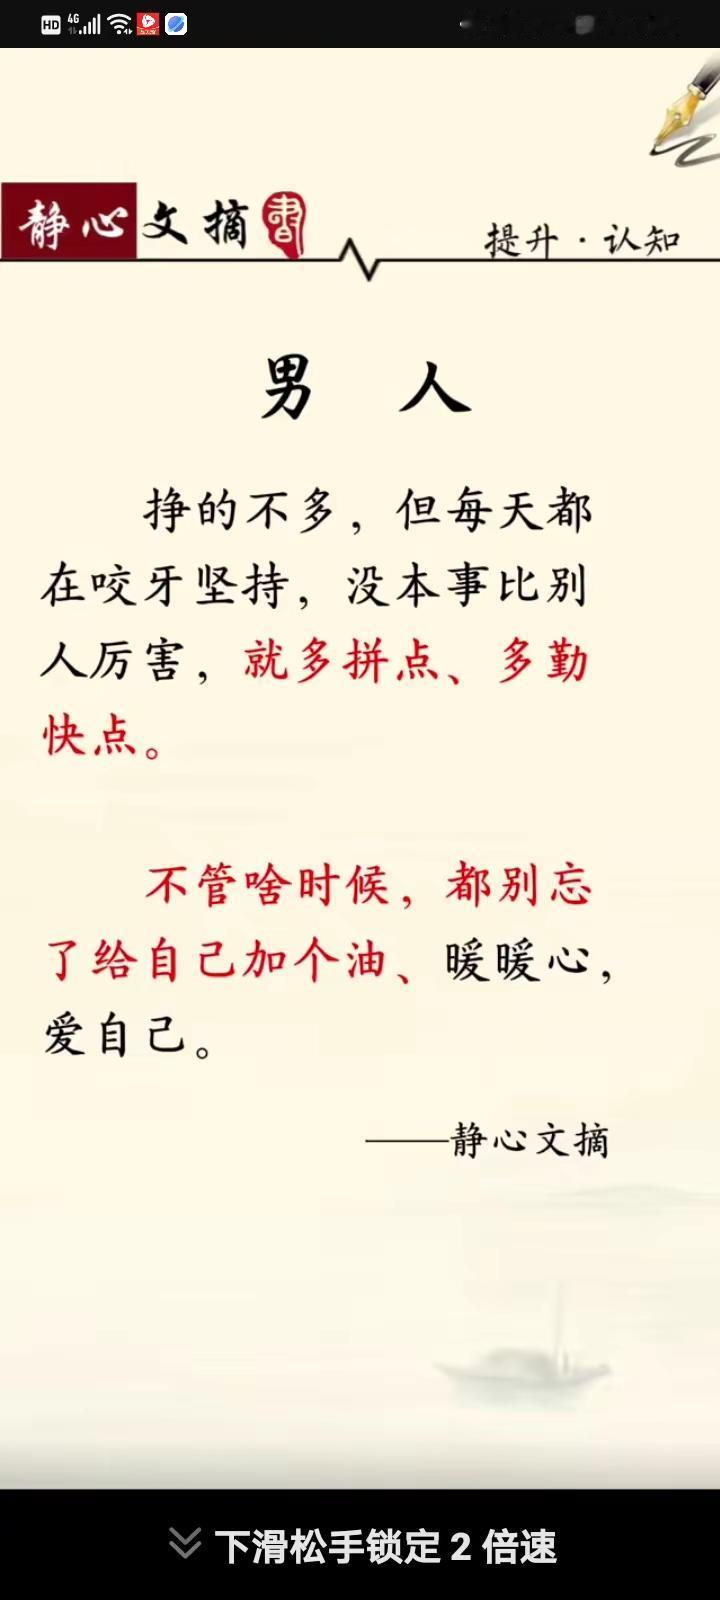 HD 4G
静心文摘 書
提升·认知
男 人
挣的不多，但每天都
在咬牙坚持，没本事比别
人厉害，就多拼点、多勤
快点。
不管啥时候，都别忘
了给自己加个油、暖暖心，
爱自己。
——静心文摘
下滑松手锁定 2 倍速